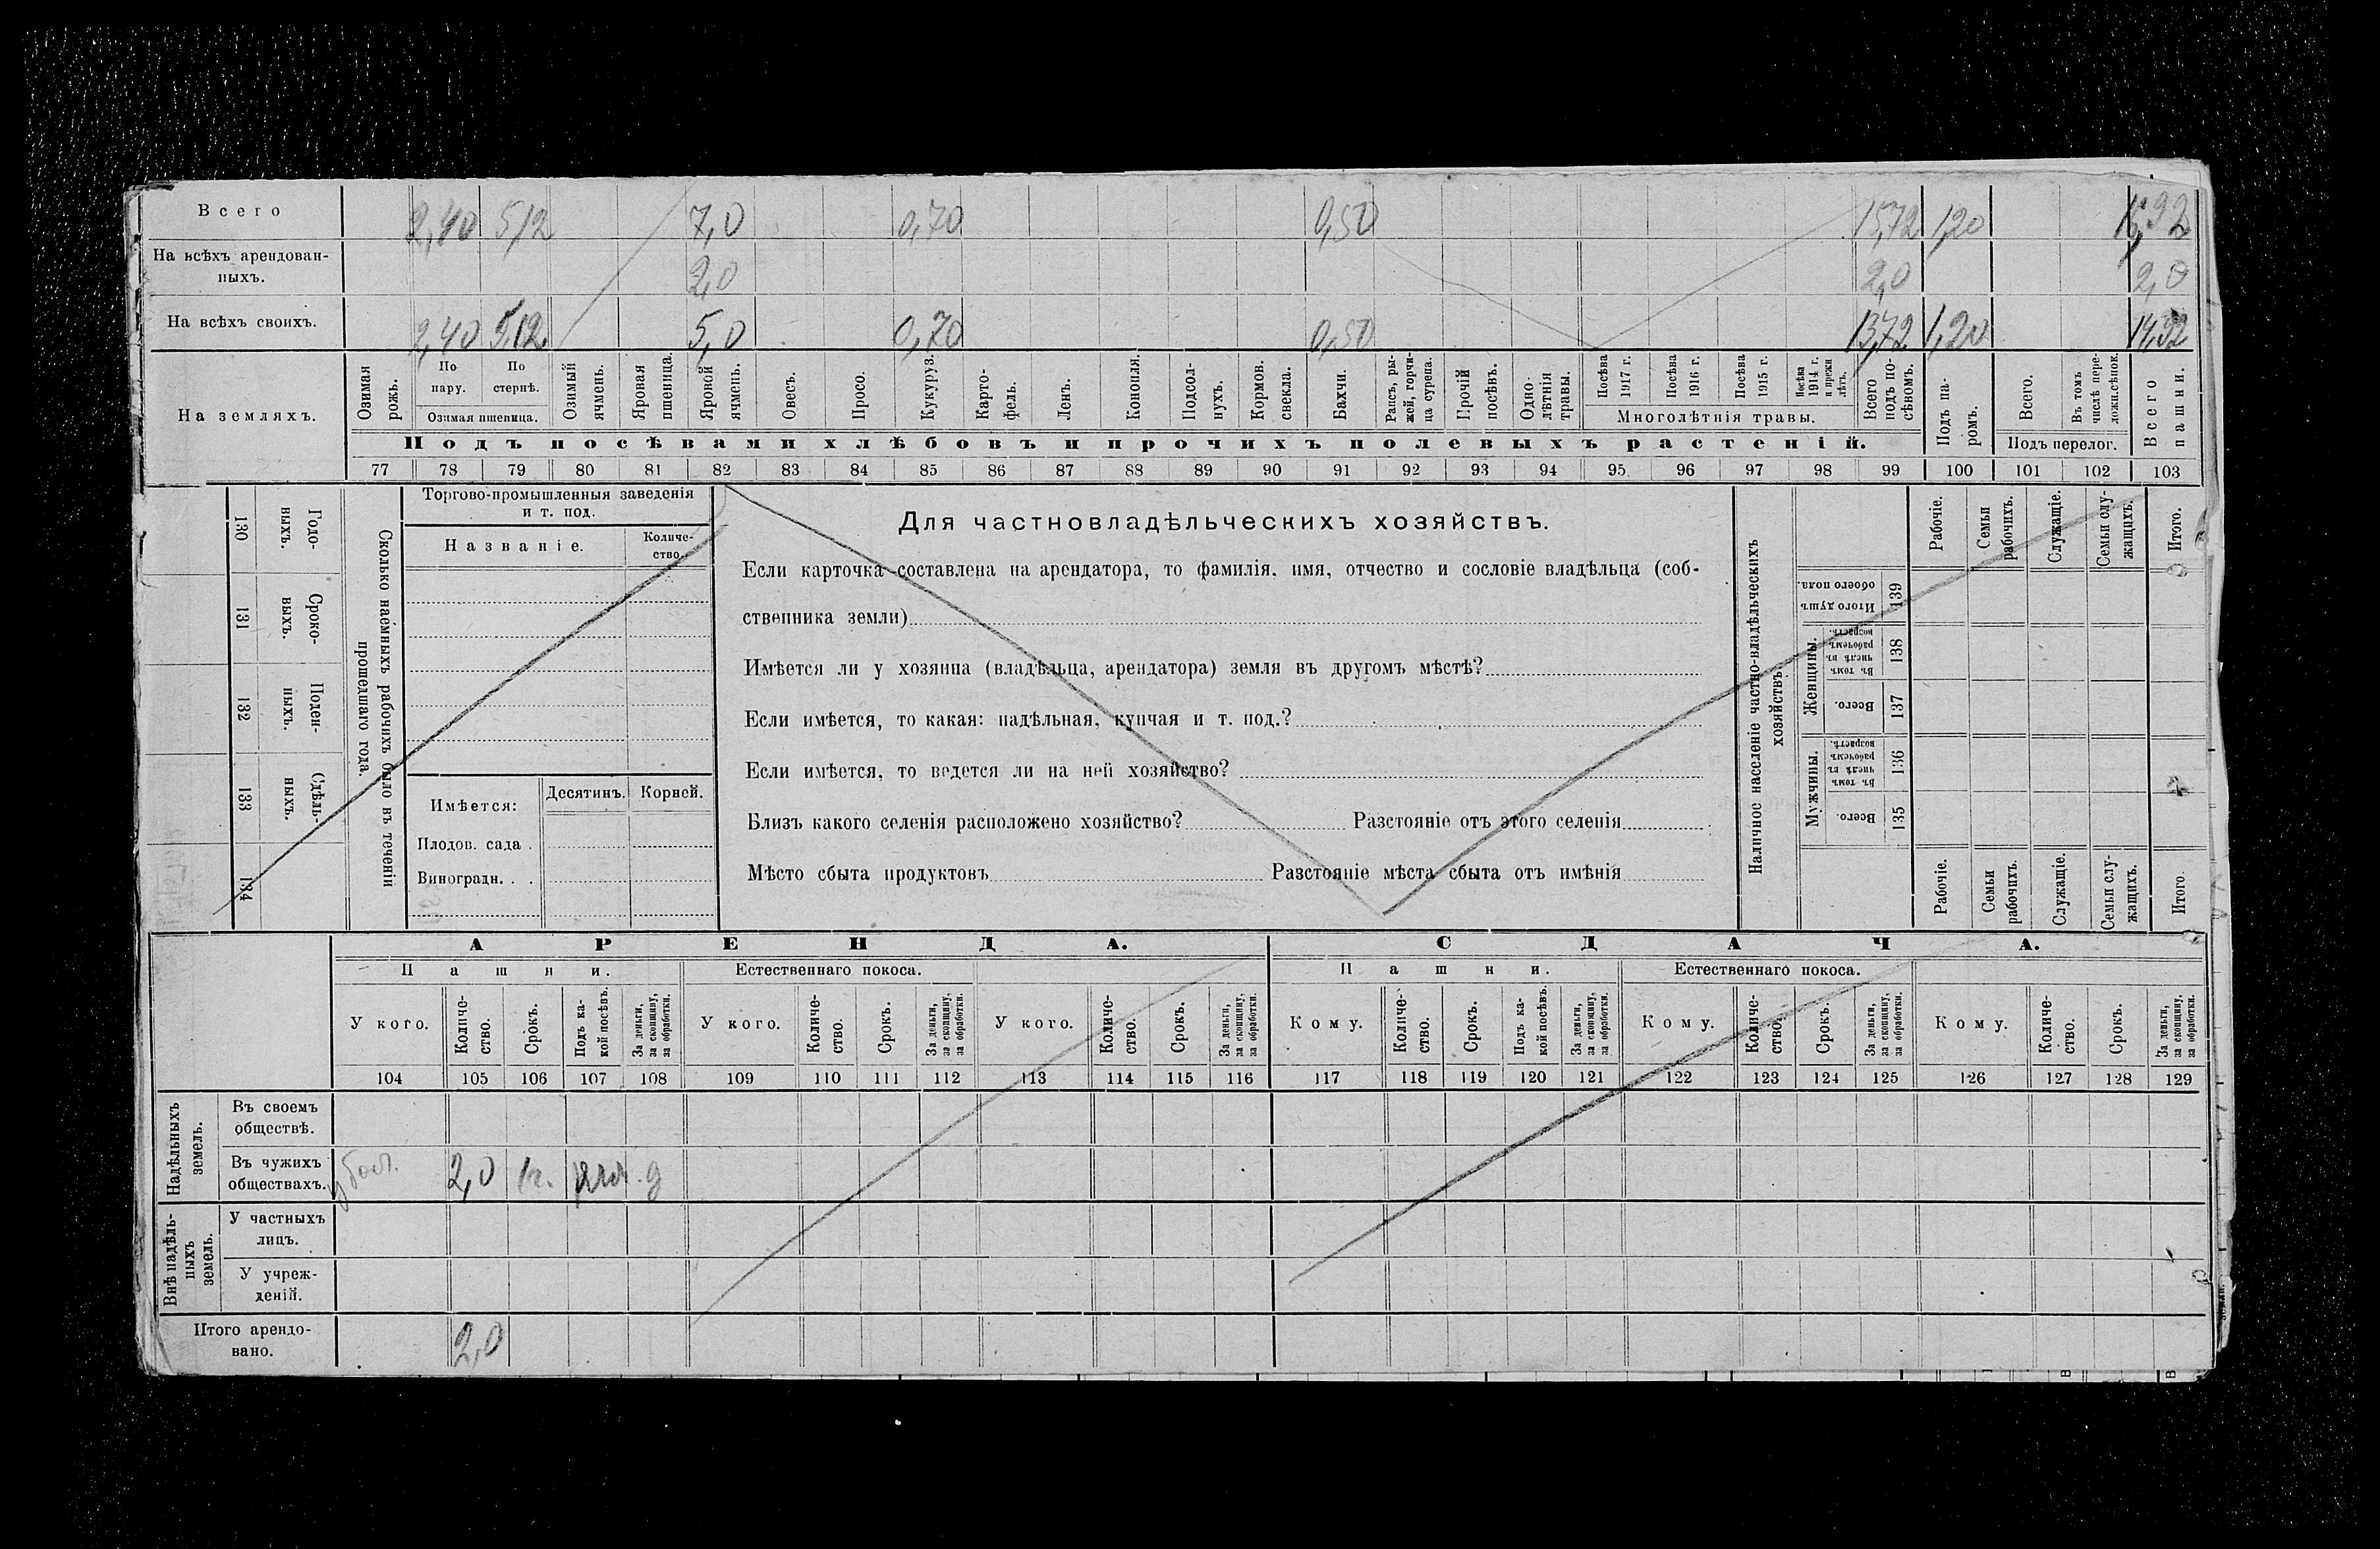 Всего 2,40 5,12 7,0 0,70 0,50 15,72 1,20
На всѣхъ арендован-
ныхъ. 2,0 2,0 2,0
На всѣхъ своихъ. 2,40 5,12 5,0 0,70 0,50 13,72 1,20 14,92
На земляхъ.
Озимая рожь.
По пару.
По стернѣ.
Озимая пшеница.
Озимый ячмень.
Яровая пшеница.
Яровой ячмень.
Овесъ.
Просо.
Кукуруз.
Карто-
фель.
Ленъ.
Конопля.
Подсол-
нухъ.
Кормов.
свекла.
Бахчи.
Рапсъ, ры-
жей, горчи-
ца сурепа.
Прочій
посѣвъ.
Одно-
лѣтнія
травы.
Посѣва
1917 г.
Посѣва
1916 г.
Посѣва
1915 г.
Посѣва
1914 г.
и прежн
лѣтъ.
Многолѣтнія травы.
Всего
подъ по-
сѣвомъ.
Подъ па-
ромъ.
Всего.
Въ томъ
числѣ пере-
ложн.сѣнок.
Подъ перелог.
Всего
пашни.
Подъ посѣвами хлѣбовъ и прочихъ полевыхъ растеній.
77 78 79 80 81 82 83 84 85 86 87 88 89 90 91 92 93 94 95 96 97 98 99 100 101 102 103
130 Годо-
выхъ.
131 Сроко-
выхъ.
132 Поден-
ныхъ.
133 Сдѣль-
ныхъ.
134
Сколько наемныхъ рабочихъ было въ теченіи
прошедшаго года.
Торгово-промышленныя заведенія
и т. под.
Названіе.
Количе-
ство.
Имѣется: Десятинъ. Корней.
Плодов. сада .
Виноградн. . .
Для частновладѣльческихъ хозяйствъ.
Если карточка составлена на арендатора, то фамилія, имя, отчество и сословіе владѣльца (соб-
ственника земли)
Имѣется ли у хозяина (владѣльца, арендатора) земля въ другомъ мѣстѣ?
Если имѣется, то какая: надѣльная, купчая и т. под.?
Если имѣется, то ведется ли на ней хозяйство?
Близъ какого селенія расположено хозяйство? Разстояніе отъ этого селенія
Мѣсто сбыта продуктовъ Разстояніе мѣста сбыта отъ имѣнія
Наличное населеніе частно-владѣльческихъ
хозяйствъ.
Рабочіе.
Семьи
рабочихъ.
Служащіе.
Семьи слу-
жащихъ.
Итого.
Итого душъ
обоего пола.
139
Женщины.
Въ томъ
числѣ въ
рабочемъ
возрастѣ.
138
Всего.
137
Мужчины.
Въ томъ
числѣ въ
рабочемъ
возрастѣ.
136
Всего.
135
Рабочіе.
Семьи
рабочихъ.
Служащіе.
Семьи слу-
жащихъ.
Итого.
АРЕНДА. СДАЧА.
Пашни. Естественнаго покоса. Пашни. Естественнаго покоса.
У кого.
Количе-
ство.
Срокъ.
Подъ ка-
кой посѣвъ.
За деньги,
за скопщину,
за обработки.
У кого.
Количе-
ство.
Срокъ.
За деньги,
за скопщину,
за обработки.
У кого.
Количе-
ство.
Срокъ.
За деньги,
за скопщину,
за обработки.
Кому.
Количе-
ство.
Срокъ.
Подъ ка-
кой посѣвъ.
За деньги,
за скопщину,
за обработки.
Кому.
Количе-
ство.
Срокъ.
За деньги,
за скопщину,
за обработки.
Кому.
Количе-
ство.
Срокъ.
За деньги,
за скопщину,
за обработки.
104 105 106 107 108 109 110 111 112 113 114 115 116 117 118 119 120 121 122 123 124 125 126 127 128 129
Надѣльныхъ
земель.
Въ своемъ
обществѣ.
Въ чужихъ
обществахъ. 2,0 1 г. яч. д
Внѣ надѣль-
ныхъ
земель.
У частныхъ
лицъ.
У учреж-
деній.
Итого арендо-
вано. 2,0